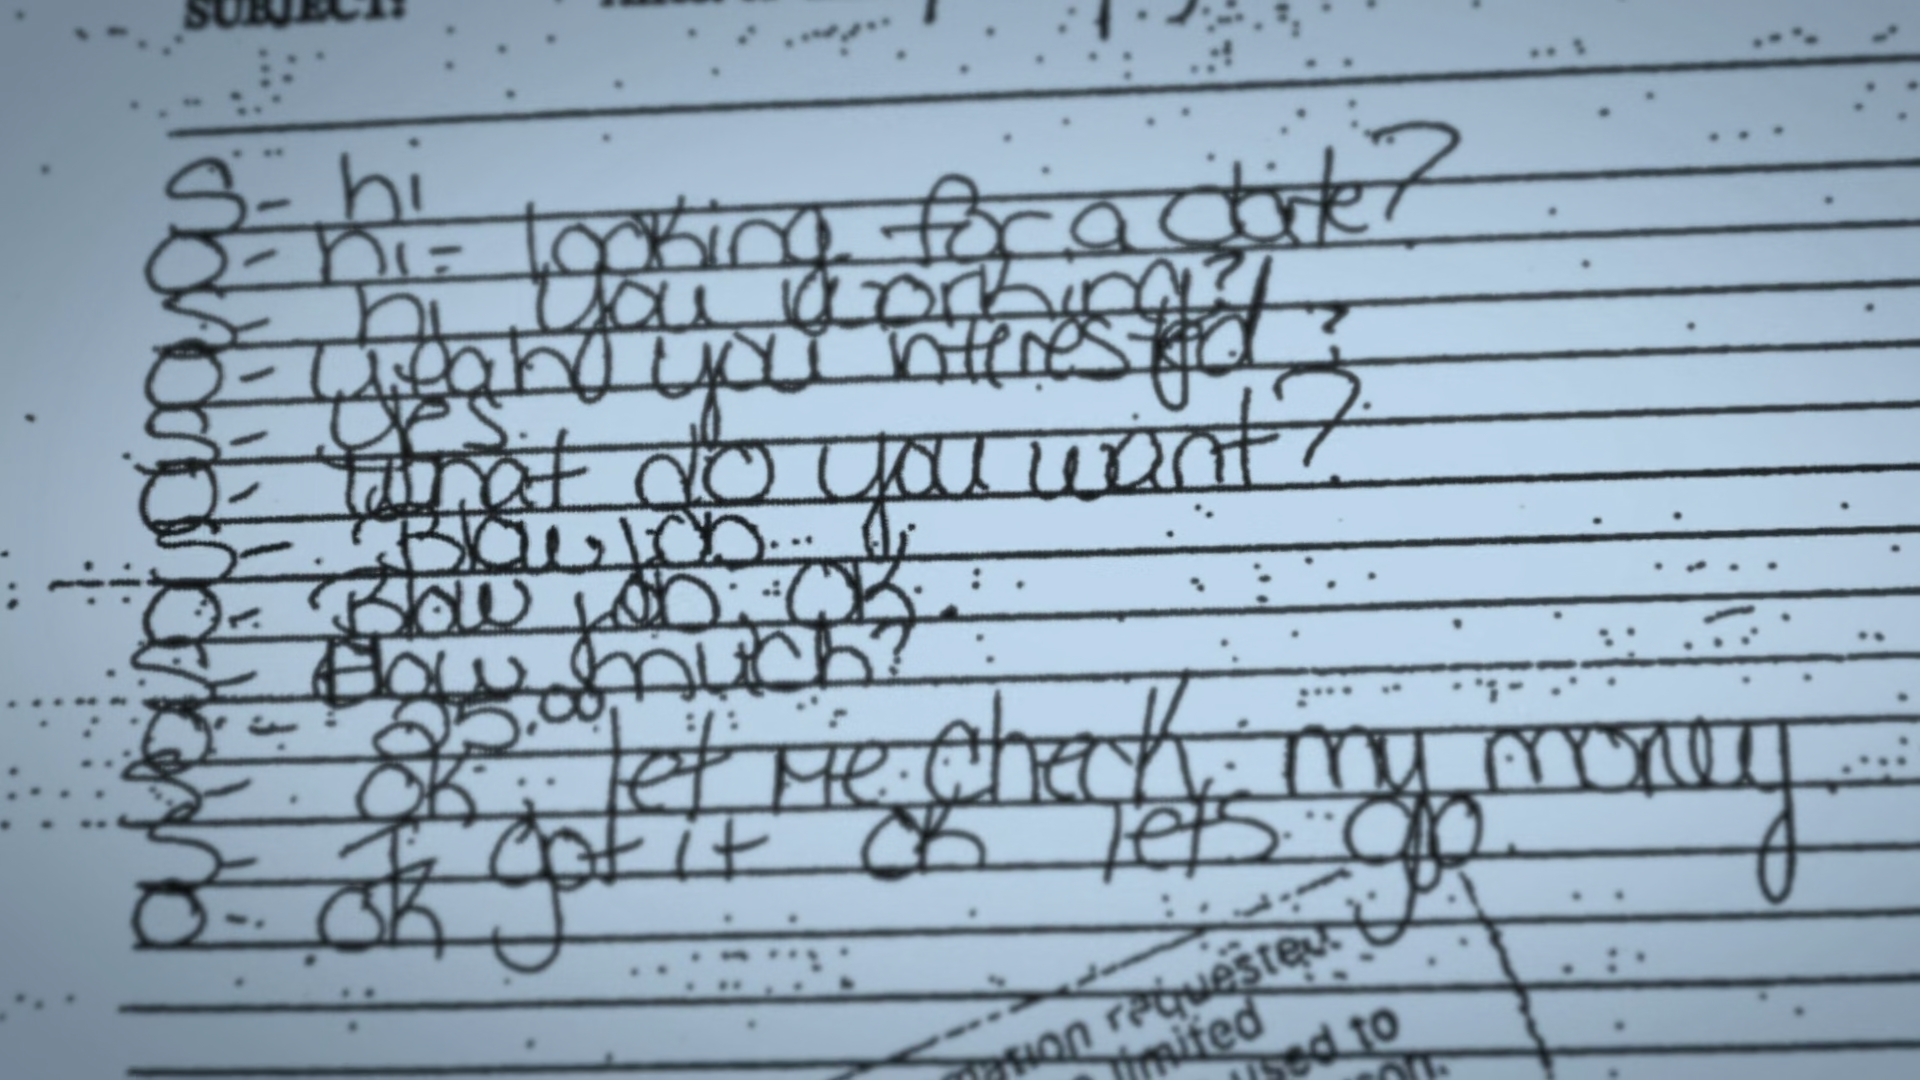 SUBJECT:
S- hi
O- hi - looking for a date?
S- hi you working?
O- yeah you interested?
S- yes.
O- What do you want?
S- Blow job
O- Blow job OK.
S- How much?
O- 25.00
S- OK let me check my money
S- I got it ok lets go.
O- OK
requested.
limited
used to